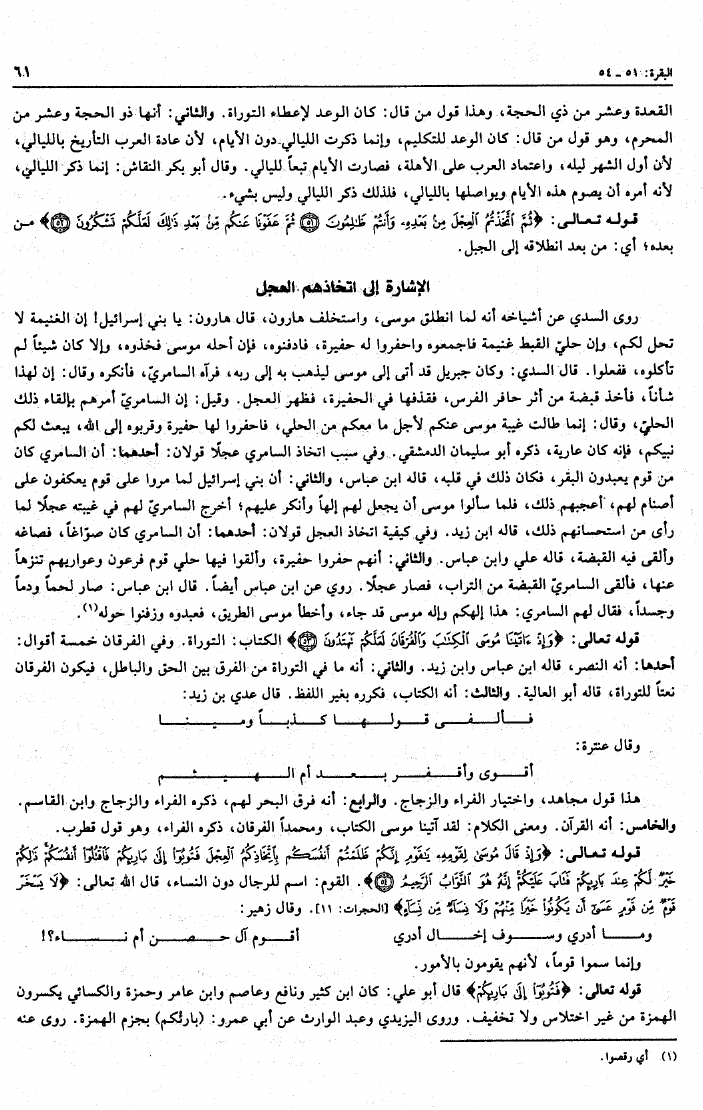 البقرة: ٥١ ـ ٥٤
٦١
القعدة وعشر من ذي الحجة، وهذا قول من قال: كان الوعد لإعطاء التوراة. والثاني: أنها ذو الحجة وعشر من
المحرم، وهو قول من قال: كان الوعد للتكليم، وإنما ذكرت الليالي دون الأيام، لأن عادة العرب التأريخ بالليالي،
لأن أول الشهر ليله، واعتماد العرب على الأهلة، فصارت الأيام تبعاً لليالي. وقال أبو بكر النقاش: إنما ذكر الليالي،
لأنه أمره أن يصوم هذه الأيام ويواصلها بالليالي، فلذلك ذكر الليالي وليس بشيء.
قوله تعالى: ﴿ثُمَّ اتَّخَذْتُمُ الْعِجْلَ مِنْ بَعْدِهِ وَأَنْتُمْ ظَالِمُونَ ﴿٥١﴾ ثُمَّ عَفَوْنَا عَنْكُمْ مِنْ بَعْدِ ذَلِكَ لَعَلَّكُمْ تَشْكُرُونَ ﴿٥٢﴾﴾ من
بعده؛ أي: من بعد انطلاقه إلى الجبل.
الإشارة إلى اتخاذهم العجل
روى السدي عن أشياخه أنه لما انطلق موسى، واستخلف هارون، قال هارون: يا بني إسرائيل! إن الغنيمة لا
تحل لكم، وإن حليّ القبط غنيمة فاجمعوه واحفروا له حفيرة، فادفنوه، فإن أحله موسى فخذوه، وإلا كان شيئاً لم
تأكلوه، ففعلوا. قال السدي: وكان جبريل قد أتى إلى موسى ليذهب به إلى ربه، فرآه السامريّ، فأنكره وقال: إن لهذا
شأناً، فأخذ قبضة من أثر حافر الفرس، فقذفها في الحفيرة، فظهر العجل. وقيل: إن السامريّ أمرهم بإلقاء ذلك
الحليّ، وقال: إنما طالت غيبة موسى عنكم لأجل ما معكم من الحلي، فاحفروا لها حفيرة وقربوه إلى الله، يبعث لكم
نبيكم، فإنه كان عارية، ذكره أبو سليمان الدمشقي. وفي سبب اتخاذ السامري عجلًا قولان: أحدهما: أن السامري كان
من قوم يعبدون البقر، فكان ذلك في قلبه، قاله ابن عباس، والثاني: أن بني إسرائيل لما مروا على قوم يعكفون على
أصنام لهم، أعجبهم ذلك، فلما سألوا موسى أن يجعل لهم إلهاً وأنكر عليهم؛ أخرج السامريّ لهم في غيبته عجلًا لما
رأى من استحسانهم ذلك، قاله ابن زيد. وفي كيفية اتخاذ العجل قولان: أحدهما: أن السامري كان صوّاغاً، فصاغه
وألقى فيه القبضة، قاله علي وابن عباس. والثاني: أنهم حفروا حفيرة، وألقوا فيها حلي قوم فرعون وعواريهم تنزهاً
عنها، فألقى السامريّ القبضة من التراب، فصار عجلًا. روي عن ابن عباس أيضاً. قال ابن عباس: صار لحماً ودماً
وجسداً، فقال لهم السامري: هذا إلهكم وإله موسى قد جاء، وأخطأ موسى الطريق، فعبدوه وزفنوا حوله(١).
قوله تعالى: ﴿وَإِذْ ءَاتَيْنَا مُوسَى الْكِتَابَ وَالْفُرْقَانَ لَعَلَّكُمْ تَهْتَدُونَ ﴿٥٣﴾﴾ الكتاب: التوراة. وفي الفرقان خمسة أقوال:
أحدها: أنه النصر، قاله ابن عباس وابن زيد. والثاني: أنه ما في التوراة من الفرق بين الحق والباطل، فيكون الفرقان
نعتاً للتوراة، قاله أبو العالية. والثالث: أنه الكتاب، فكرره بغير اللفظ. قال عدي بن زيد:
فـألـفـى قـولـهـا كـذبـاً ومـيـنـا
وقال عنترة:
أقـوى وأقـفـر بـعـد أم الـهـيـثـم
هذا قول مجاهد، واختيار الفراء والزجاج. والرابع: أنه فرق البحر لهم، ذكره الفراء والزجاج وابن القاسم.
والخامس: أنه القرآن. ومعنى الكلام: لقد آتينا موسى الكتاب، ومحمداً الفرقان، ذكره الفراء، وهو قول قطرب.
قوله تعالى: ﴿وَإِذْ قَالَ مُوسَى لِقَوْمِهِ يَقَوْمِ إِنَّكُمْ ظَلَمْتُمْ أَنْفُسَكُمْ بِاتِّخَاذِكُمُ الْعِجْلَ فَتُوبُوا إِلَى بَارِئِكُمْ فَاقْتُلُوا أَنْفُسَكُمْ ذَلِكُمْ
خَيْرٌ لَكُمْ عِنْدَ بَارِئِكُمْ فَتَابَ عَلَيْكُمْ إِنَّهُ هُوَ التَّوَّابُ الرَّحِيمُ ﴿٥٤﴾﴾. القوم: اسم للرجال دون النساء، قال الله تعالى: ﴿لَا يَسْخَرْ
قَوْمٌ مِنْ قَوْمٍ عَسَى أَنْ يَكُونُوا خَيْرًا مِنْهُمْ وَلَا نِسَاءٌ مِنْ نِسَاءٍ﴾ [الحجرات: ١١]. وقال زهير:
ومـا أدري وسـوف إخـال أدري أقـوم آل حـصـن أم نـسـاء؟!
وإنما سموا قوماً، لأنهم يقومون بالأمور.
قوله تعالى: ﴿فَتُوبُوا إِلَى بَارِئِكُمْ﴾ قال أبو علي: كان ابن كثير ونافع وعاصم وابن عامر وحمزة والكسائي يكسرون
الهمزة من غير اختلاس ولا تخفيف. وروى اليزيدي وعبد الوارث عن أبي عمرو: (بارئْكم) بجزم الهمزة. روى عنه
(١) أي رقصوا.